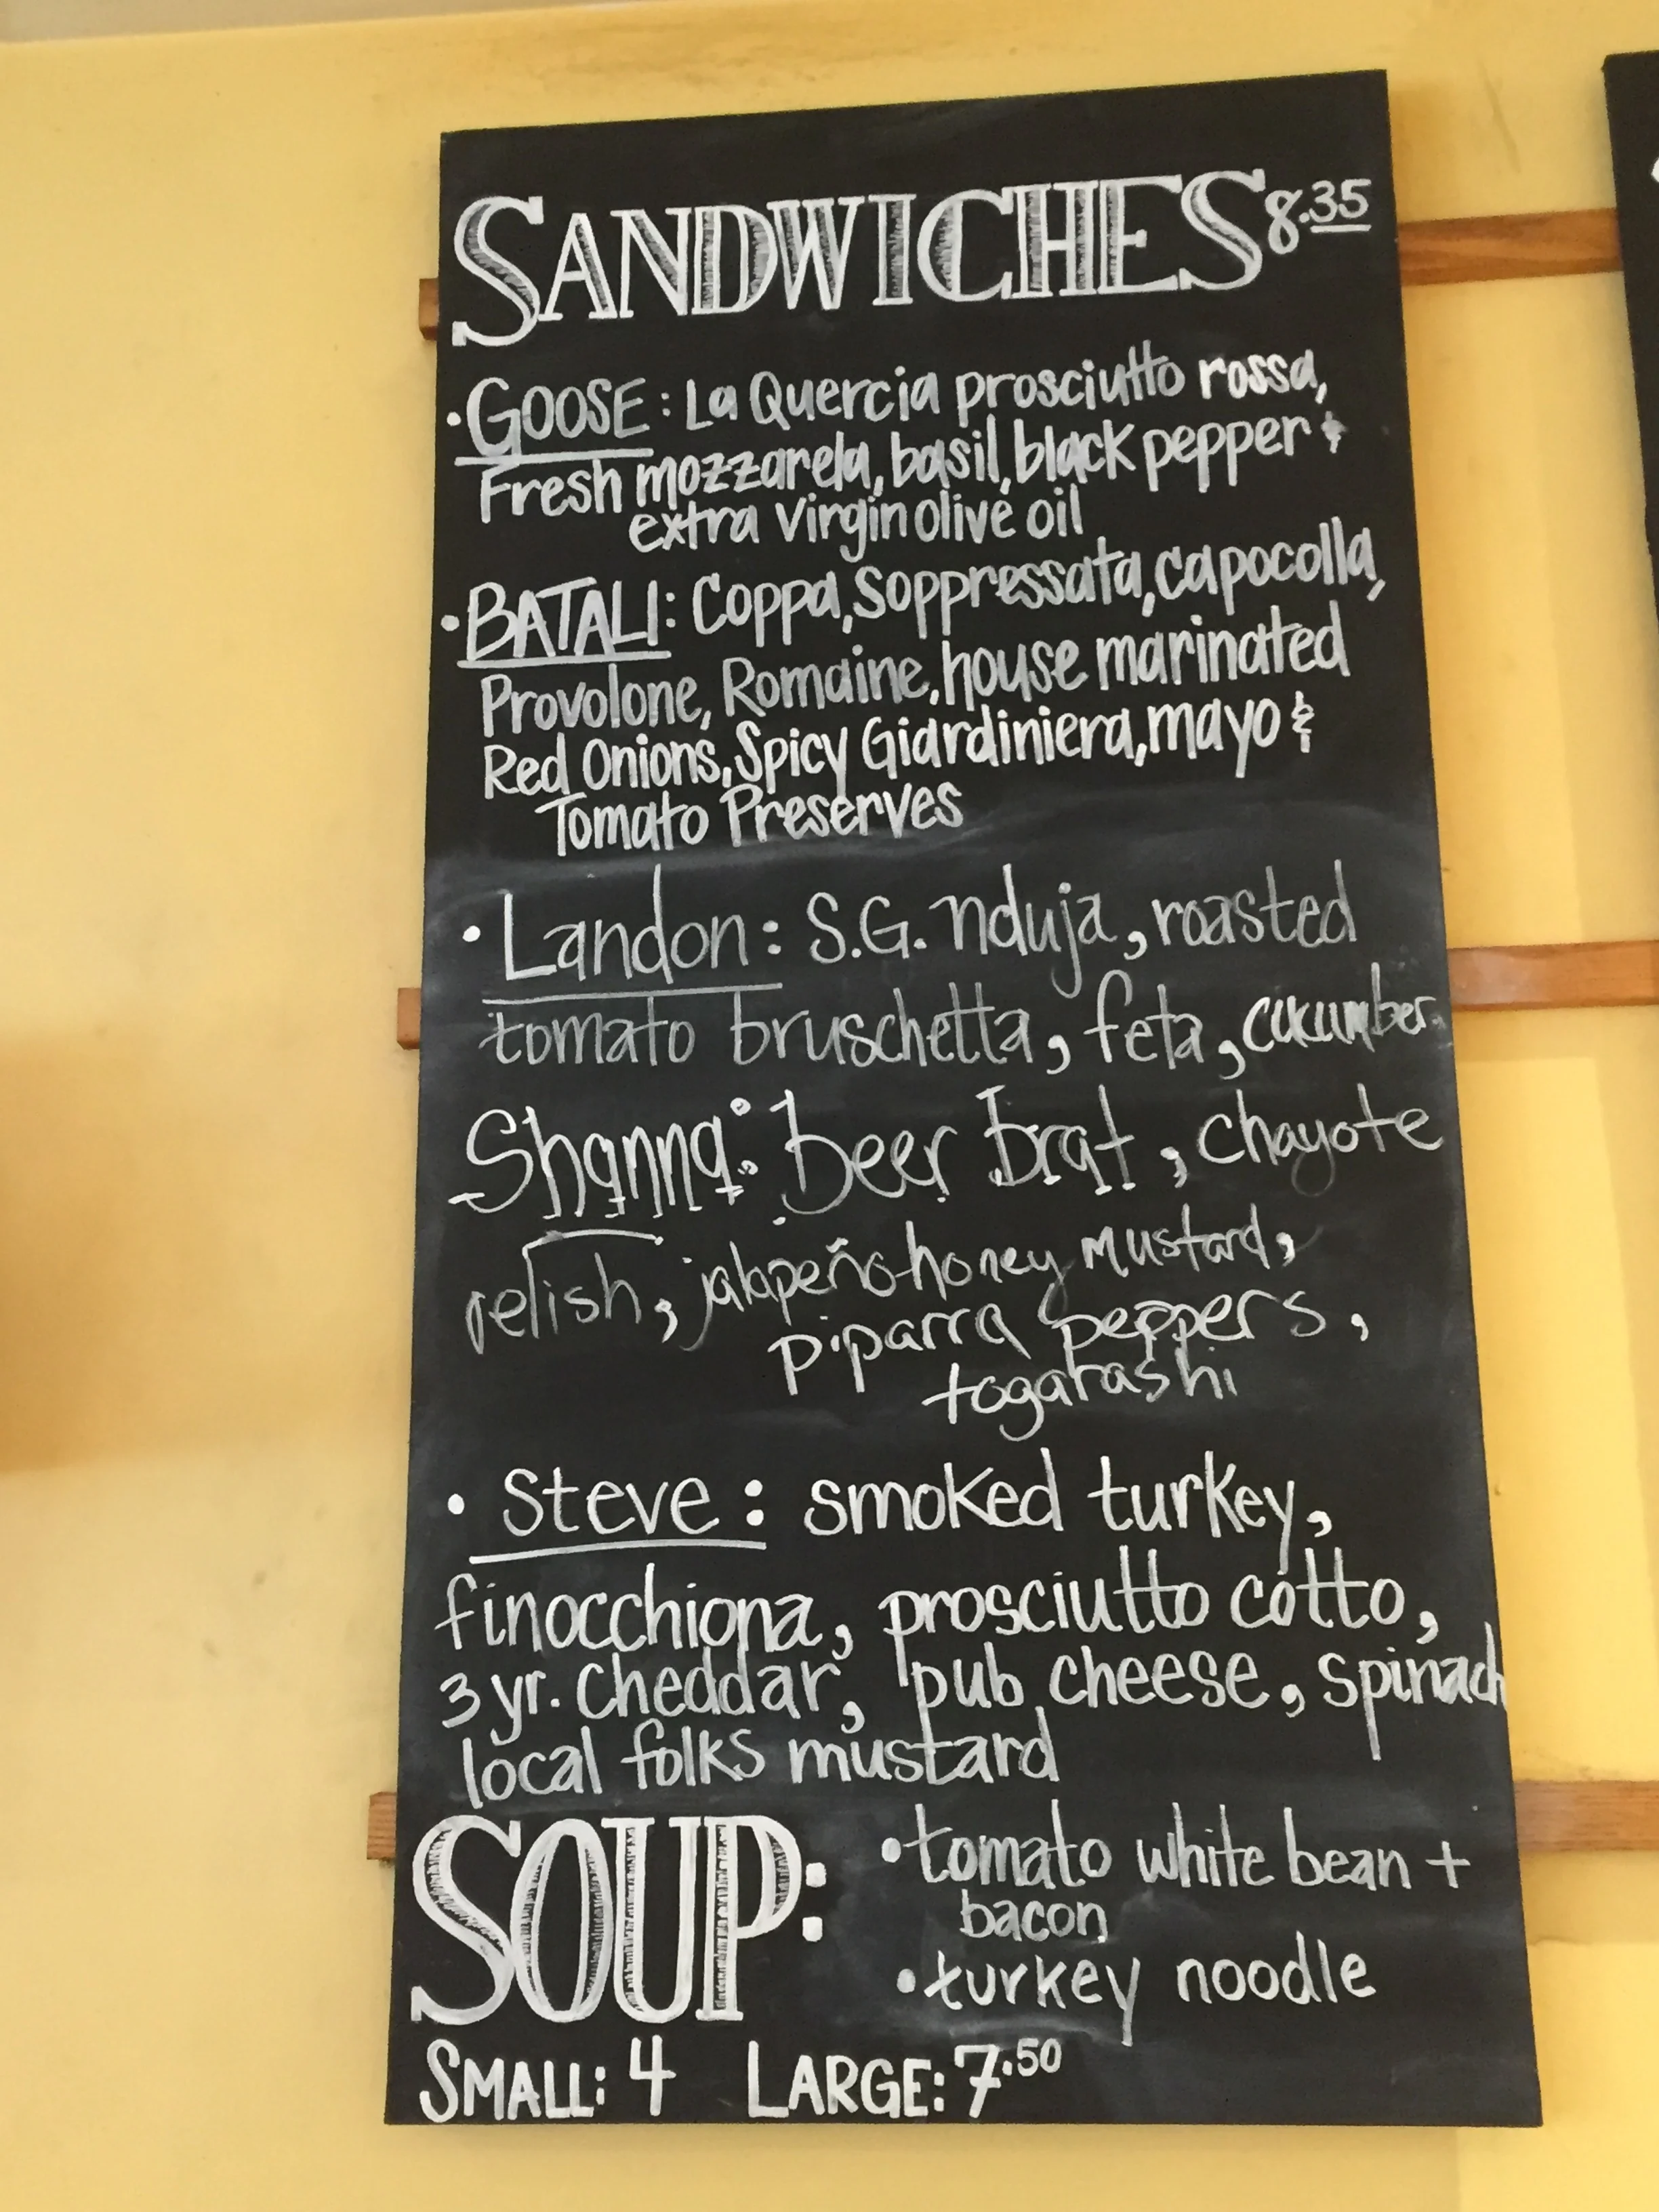 SANDWICHES 8.35
• GOOSE: La Quercia prosciutto rossa,
Fresh mozzarela, basil, black pepper &
extra virgin olive oil
• BATALI: Coppa, Soppressata, capocolla,
Provolone, Romaine, house marinated
Red Onions, Spicy Giardiniera, mayo &
Tomato Preserves
• Landon: S.G. nduja, roasted
tomato bruschetta, feta, cucumber
Shanna: beer brat, chayote
relish, jalapeño honey mustard,
piparra peppers,
togarashi
• Steve: smoked turkey,
finocchiona, prosciutto cotto,
3 yr. cheddar, pub cheese, spinach
local folks mustard
SOUP: • tomato white bean +
bacon
• turkey noodle
SMALL: 4 LARGE: 7.50